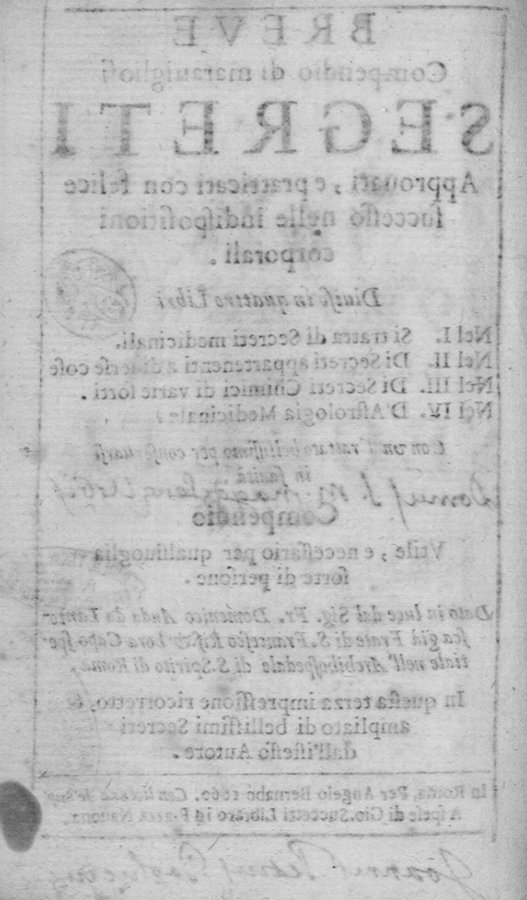 BREVE
Compendio di marauigliosi
SEGRETI
Approuati, e pratticati con felice
successo nelle indispositioni
corporali.
Diuiso in quattro Libri
Nel I. Si tratta di Secreti medicinali.
Nel II. Di Secreti appartenenti a diuerse cose
Nel III. Di Secreti Chimici di varie sorti.
Nel IV. D'Astrologia Medicinale.
Con vn Trattato bellissimo per conseruarsi
in sanità
Compendio
Vtile, e necessario per qualsiuoglia
sorte di persone.
Dato in luce dal Sig. Fr. Domenico Auda da
sca già Frate di S. Francesco Rif. & hora Capo spe-
tiale nell'Archihospedale di S. Spirito di Roma.
In questa terza impressione ricorretto, &
ampliato di bellissimi Secreti
dall'istesso Autore.
In Roma, Per Angelo Bernabò 1660. Con licenza de' Sup.
A spese di Gio. Succetti Libraro in Piazza Nauona.